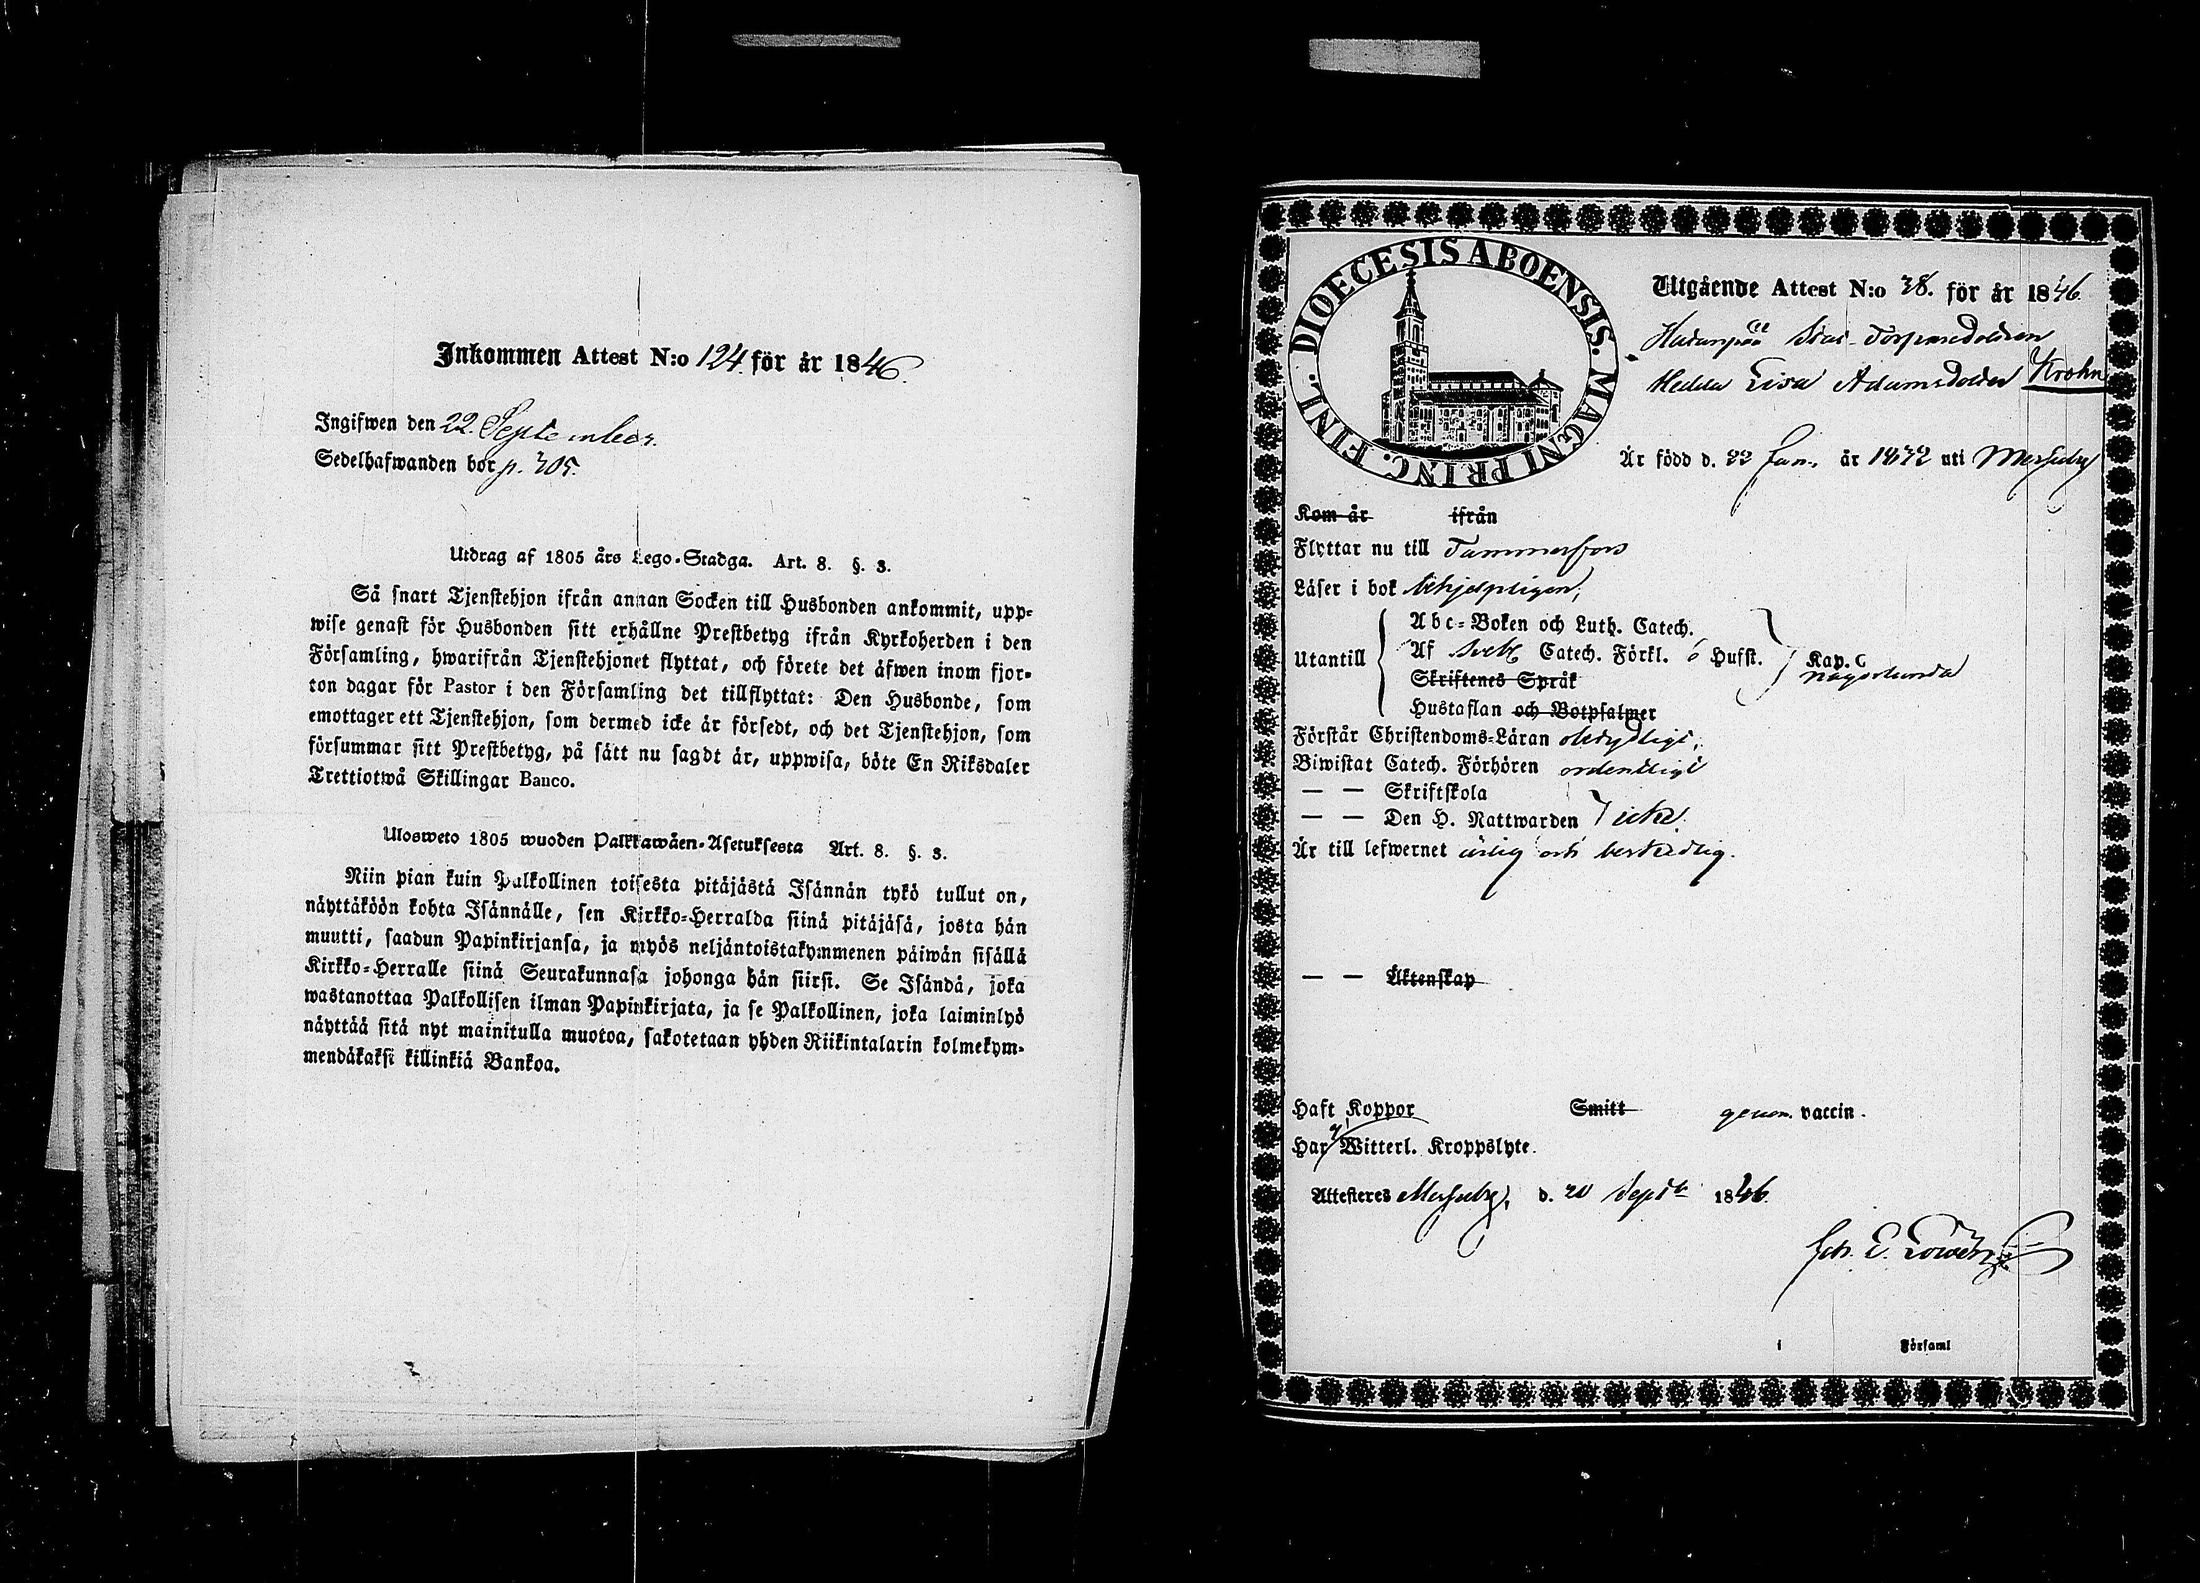 Inkommen Attest N:o 124 för år 1846.
Ingifwen den 22. September.
Sedelhafwanden bor p. 305.
Utdrag af 1805 års Lego-Stadga. Art. 8. §. 3.
Så snart Tjenstehjon ifrån annan Socken till Husbonden ankommit, upp-
wise genast för Husbonden sitt erhållne Prestbetyg ifrån Kyrkoherden i den
Församling, hwarifrån Tjenstehjonet flyttat, och förete det äfwen inom fjor-
ton dagar för Pastor i den Församling det tillflyttat: Den Husbonde, som
emottager ett Tjenstehjon, som dermed icke är försedt, och det Tjenstehjon, som
försummar sitt Prestbetyg, på sätt nu sagdt är, uppwisa, böte En Riksdaler
Trettiotwå Skillingar Banco.
Ulosweto 1805 wuoden Palkkawäen-Asetuksesta Art. 8. §. 3.
Niin pian kuin Palkollinen toisesta pitäjästä Isännän tykö tullut on,
näyttäköön kohta Isännälle, sen Kirkko-Herralda siinä pitäjäsä, josta hän
muutti, saadun Papinkirjansa, ja myös neljäntoistakymmenen päiwän sisällä
Kirkko-Herralle siinä Seurakunnasa johonga hän siirsi. Se Isändä, joka
wastanottaa Palkollisen ilman Papinkirjata, ja se Palkollinen, joka laiminlyö
näyttää sitä nyt mainitulla muotoa, sakotetaan yhden Riikintalarin kolmekym-
mendäkaksi killinkiä Bankoa.
DIOECESIS ABOENSIS. MAGNI PRINC. FINL.
Utgående Attest N:o 38. för år 1846
Hatanpää Torparedottren
Hedda Lisa Adamsdotter Krohn
Är född d. 22 Jan. år 1832 uti Messuby
Kom år ifrån
Flyttar nu till Tammerfors
Läser i bok behjelpligen,
Utantill
Abc-Boken och Luth. Catech.
Af Sveb. Catech. Förkl. 6 Hufst. Kap. 6
någorlunda
Skriftenes Språk
Hustaflan och Botpsalmer
Förstår Christendoms-Läran
Biwistat Catech. Förhören ordentligt
— — Skriftskola
— — Den H. Nattwarden icke.
Är till lefwernet ärlig och beskedlig.
— — Äktenskap
Haft Koppor Smitt genom vaccin.
Har Witterl. Kroppslyte.
Attesteres Messuby, d. 20 Sept. 1846.
Joh. E.
i Församl